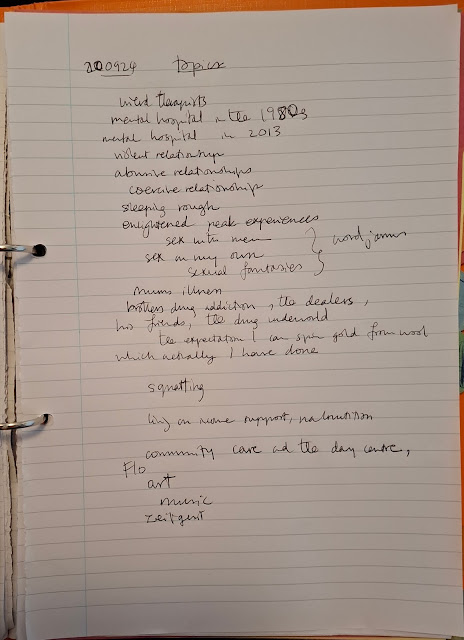 200924 topics
weird therapists
mental hospital in the 1980s
mental hospital in 2013
violent relationships
abusive relationships
coercive relationships
sleeping rough
enlightened peak experiences
sex with men
sex on my own } wordjams
sexual fantasies
mums illness
brothers drug addiction, the dealers,
his friends, the drug underworld
the expectation I can spin gold from wool
which actually I have done
squatting
living on income support, malnutrition
community care and the day centre,
Flo
art
music
zeitgeist